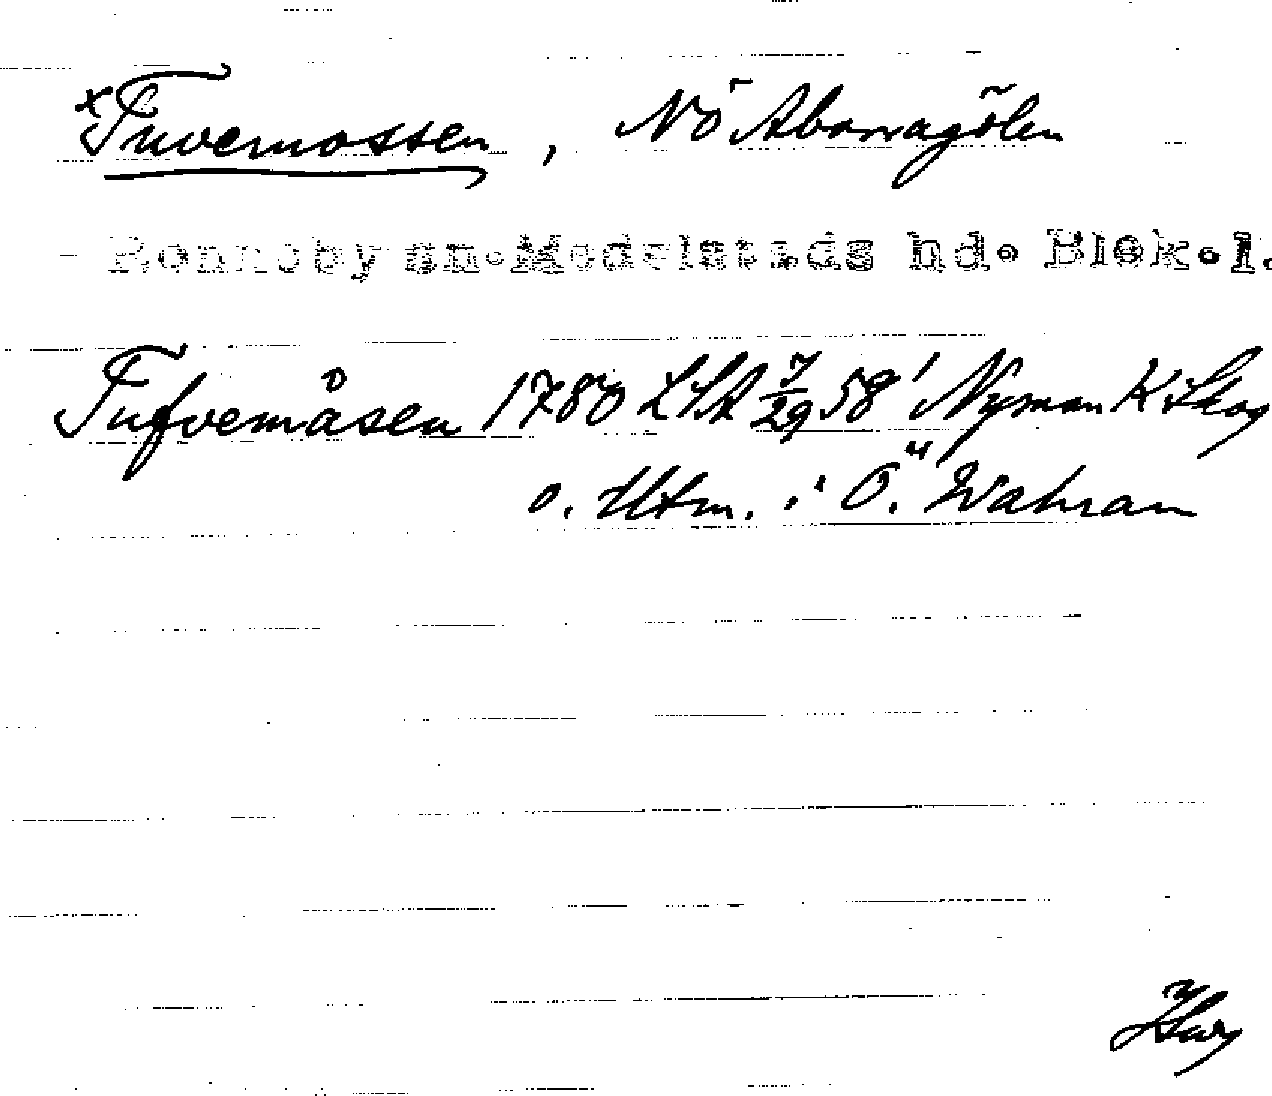 xTuvemossen, NÖ Abborragölen
- Ronneby sn. Medelstads hd. Blek.l.
Tufvemåsen 1780 LSA 7/29 58' Nyman K Skog
o. Utm. i Ö. Wahran